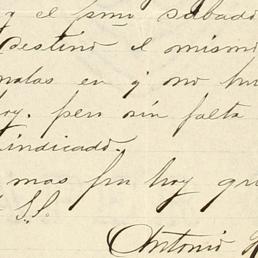 y el pmo sabado
Destino el mismo
malas en q no hu
hoy, pero sin falta
indicado.
mas por hoy que
S.S.
Antonio